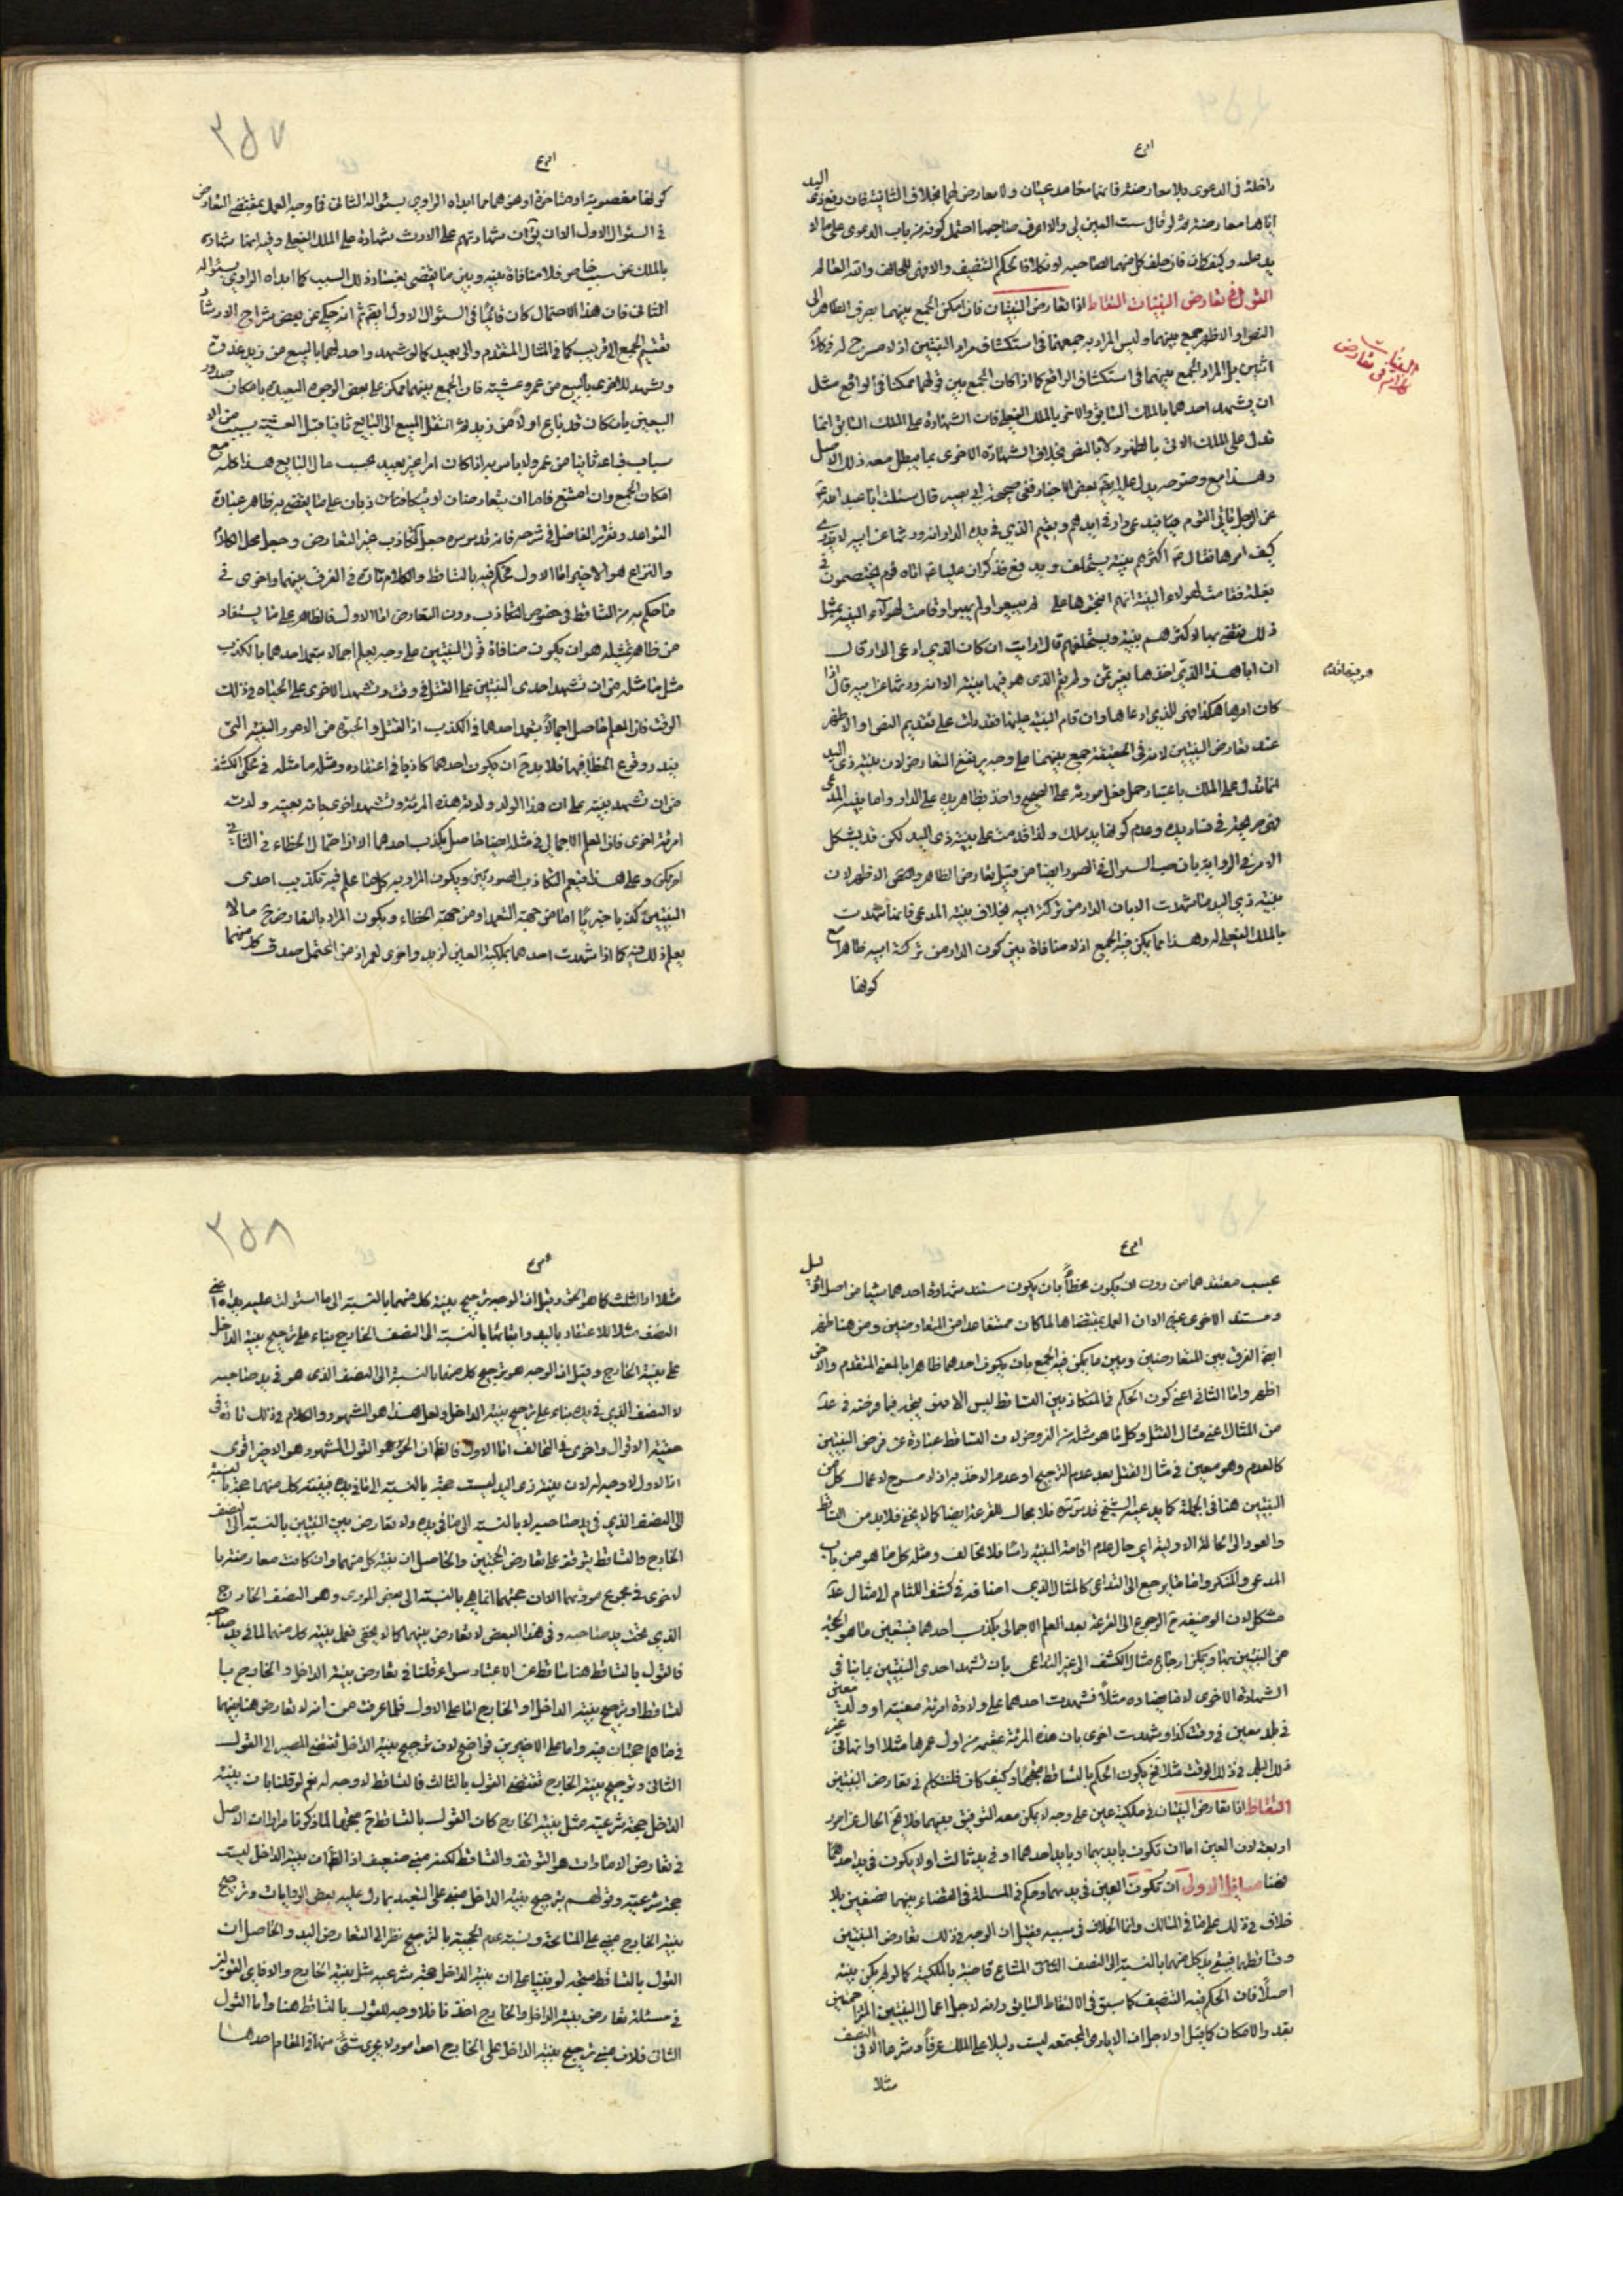 داخلة فى الدعوى بلا معارضة فانهما متعاضدتان ولا معارض لهما بخلاف الثانية فان رفع ذى اليد
يد عليه وكيف كان فان حلف كل منهما لصاحبه او نكلا فالحكم التنصيف والا قضى للحالف والله العالم
القول فى تعارض البينات التقاط اذا تعارض البينتان فان امكن الجمع بينهما بصرف الظاهر الى
النص او الاظهر جمع بينهما وليس المراد به جمعهما فى استكشاف مراد البينتين اذ لا مسرح له فى كلام
اثنين بل المراد الجمع بينهما فى استكشاف الواقع كما اذا كان الجمع بين قوليهما ممكنا فى الواقع مثل
ان يشهد احدهما بالملك السابق والاخرى بالملك الفعلى فان الشهادة على الملك السابق انما
تدل على الملك الآن بالظهور لا بالنص بخلاف الشهادة الاخرى بما يبطل معه ذلك الاصل
وهذا مع وضوحه يدل عليه ايضا بعض الاخبار ففى صحيحة ابى بصير قال سئلت ابا عبد الله ع
عن الرجل يأتى القوم فيدعى دارا فى ايديهم ويقيم الذى فى يده الدار انه ورثها عن ابيه لا يدرى
كيف امرها فقال ع اكثرهم بينة يستحلف ويدفع فذكر ان عليا ع اتاه قوم يختصمون فى
بغلة فقامت لهؤلاء البينة انهم انتجوها على لم يبيعوا ولم يهبوا وقامت لهؤلاء البينة بمثل
ذلك فقضى بها لاكثرهم بينة واستحلفهم قال ارايت ان كان الذى ادعى الدار قال
ان ابا هذا الذى اخذها بغير ثمن ولم يقم الذى هو فيها بينة الا انه ورثها عن ابيه قال اذا
كان امرها هكذا فهى للذى ادعاها وان قام البينة عليها فقد دلت على تقديم النص او الاظهر
عند تعارض البينتين لانه فى الحقيقة جمع بينهما على وجه يرتفع التعارض لان بينة ذى اليد
انما تدل على الملك باعتبار حمل فعل مورثه على الصحيح واخذ بظاهر يده على الدار واما بينة المدعى
فهى صريحة فى فساد يده وعدم كونها يد ملك ولذا قدمت على بينة ذى اليد لكن قد يشكل
الامر فى الرواية بان السؤال فى الصورة ايضا من قبيل تعارض الظاهر والنص او الاظهر لان
بينة ذى اليد ما شهدت الا بان الدار من تركة ابيه بخلاف بينة المدعى فانها شهدت
بالملك الفعلى له وهذا مما يمكن فيه الجمع اذ لا منافاة بين كون الدار من تركة ابيه ظاهرا مع
كونها
البينات
كلام فى تعارض
٣٥٧
كونها مغصوبة او مستاجرة او هو هما مما ابداه الراوى بسئواله الثانى فاوجه العمل بمقتضى التعارض
فى السئوال الاول الا ان يق ان شهادتهم على الارث شهادة على الملك الفعلى وفيه انها شهادة
بالملك عن سبب خاص فلا منافاة بينه وبين ما يقتضى بفساد ذلك السبب كما ابداه الراوى بسئواله
الثانى فان هذا الاحتمال كان قائما فى السئوال الاول ايضا ثم انه حكى عن بعض شراح الارشاد
تقسيم الجمع الى قريب كما فى المثال المتقدم والى بعيد كما لو شهد واحد لهما بالبيع من زيد غدوة
وشهد للاخرى بالبيع من عمرو عشية فان الجمع بينهما ممكن على بعض الوجوه البعيدة بامكان صدور
البيعين بان كان قد باع اولا من زيد ثم انتقل المبيع الى البايع ثانيا قبل العشية بسبب من الا
سباب فباعه ثانيا من عمرو ولا باس به اذا كان امرا غير بعيد بحسب حال البايع هذا كله مع
امكان الجمع وان امتنع فاما ان يتعارضان او يتكاذبان على ما يقتضيه ظاهر عبارة
القواعد وتقرير الفاضل فى شرحه فانه قدس سره جعل التكاذب غير التعارض وجعل محل الكلام
والنزاع هو الاخير اما الاول فحكم فيه بالتساقط والكلام تارة فى الفرق بينهما واخرى فى
ما حكم به من التساقط فى خصوص التكاذب دون التعارض اما الاول فالظاهر على ما يستفاد
من ظاهر تمثيله هو ان يكون منافاة قولى البينتين على وجه يعلم اجمالا بتعمد احدهما بالكذب
مثل ما مثله من ان تشهد احدى البينتين على القتل فى وقت وتشهد الاخرى على الحياة فى ذلك
الوقت فان العلم حاصل اجمالا بتعمد احدهما فى الكذب اذ القتل والحيوة من الامور البينة التى
يندر وقوع الخطا فيها فلا بد ح ان يكون احدهما كاذبا فى اعتقاده ومثله ما مثله فى محكى الكشف
من ان تشهد بينة على ان هذا الولد ولدته هذه المرئة وتشهد اخرى بانه بعينه ولدته
امرئة اخرى فان العلم الاجمالى فى مثله ايضا حاصل بكذب احدهما الا اذا احتمال الخطاء فى الثانى
امر يمكن وعلى هذا فيعم التكاذب الصورتين ويكون المراد به كل ما علم فيه تكذيب احدى
البينتين كذبا خبريا اما من جهة التعمد او من جهة الخطاء ويكون المراد بالتعارض ح ما لا
يعلم ذلك فيه كما اذا شهدت احدهما بملكية العين لزيد واخرى لعمرو اذ من المحتمل صدق كل منهما
بحسب معتقدهما من دون ان يكون مخطأ بان يكون مستند شهادة احدهما شيئا من اصل او
ومستند الاخرى غيره الا ان العمل بمقتضاهما لما كان ممتنعا عدا من المتعارضين ومن هنا ظهر
ايضا الفرق بين المتعارضين وبين ما يمكن فيه الجمع بان يكون احدهما ظاهرا بالمعنى المتقدم والاخرى
اظهر واما الثانى اعنى كون الحكم فى المتكاذبين التساقط ليس الا فهو متجه فيما فرضه فى عد
من المثال اعنى مثال القتل وكل ما هو مثله من الفروض لان التساقط عبارة عن فرض البينتين
كالعدم وهو معين فى مثال القتل بعد عدم الترجيح او عدم الاخذ به اذ لا مسرح لاعمال كل من
البينتين هنا فى الجملة كما يدعيه الشيخ قدس سره فلا مجال للقرعة ايضا كما لا يخفى فلا بد من التساقط
والعود الى الحالة الاولية اى حال عدم اقامة البينة راسا فلا تحالف ومثله كل ما هو من باب
المدعى والمنكر واما ما يرجع الى التداعى كالمثال الذى اضافه فى كشف اللثام الى مثال عد
مشكل لان الوضيفة ح الرجوع الى القرعة بعد العلم الاجمالى بكذب احدهما فيتعين ما هو الحجة
من البينتين بها ويمكن ارجاع مثال الكشف الى غير التداعى بان تشهد احدى البينتين بما ينافى
الشهادة الاخرى لا ما يضاده مثلا فشهدت احدهما على ولادة امرئة معينة او ولد معين
فى بلد معين فى وقت كذا وشهدت اخرى بان هذه المرئة عقيمة من اول عمرها مثلا او انها فى غير
ذلك البلد فى ذلك الوقت مثلا فح يكون الحكم بالتساقط متجها وكيف كان فلنتكلم فى تعارض البينتين
التقاط اذا تعارض البينتان فى ملكية عين على وجه لا يمكن معه التوفيق بينهما فلا يخ الحال عن امور
اربعة لان العين اما ان تكون بايديهما او بيد احدهما او فى يد ثالث او لا يكون فى يد احد
فهنا مسائل الاولى ان تكون العين فى يدهما وحكم فى المسئلة فى القضاء بينهما نصفين بلا
خلاف فى ذلك على ما فى المسالك وانما الخلاف فى سببه فقيل ان الوجه فى ذلك تعارض البينتين
وتساقطهما فيبقى يد كل منهما بالنسبة الى النصف المشاع قاضية بالملكية كما لو لم يكن بينة
اصلا فان الحكم فيه التنصيف كما سبق فى الالتقاط السابق وانه لاجل اعمال البينتين المتزاحمتين
بقدر الامكان كما قيل او لاجل ان الايادى المجتمعة ليست دليلا على الملك عرفا وشرعا الا فى النصف
مثلا
٣٥٨
مثلا او الثلث كما هو الحق وقيل ان الوجه ترجيح بينة كل منهما بالنسبة الى ما استولت عليه يده اعنى
النصف مثلا للاعتقاد باليد واثباتها بالنسبة الى النصف الخارج بناء على ترجيح بينة الداخل
على بينة الخارج وقيل ان الوجه هو ترجيح كل منهما بالنسبة الى النصف الذى هو فى يد صاحبه
لا النصف الذى فى يده بناء على ترجيح بينة الداخل ولعل هذا هو المشهور والكلام فى ذلك تارة فى
حقية الاقوال واخرى فى التحالف اما الاول فالظ ان الحق هو القول المشهور وهو الاخير اقوى
اذ الاول لا وجه له لان بينة ذى اليد ليست حجة بالنسبة الى ما فى يده فبينة كل منهما حجة بالنسبة
الى النصف الذى فى يد صاحبه لا بالنسبة الى ما فى يده ولا تعارض بين البينتين بالنسبة الى النصف
الخارج والتساقط يتوقف على تعارض الحجتين والحاصل ان بينة كل منهما وان كانت معارضة با
لاخرى فى مجموع موردهما الا ان حجيتهما انما هى بالنسبة الى بعض المورد وهو النصف الخارج
الذى تحت يد صاحبه وفى هذا البعض لا تعارض بينهما كما لا يخفى فعمل ببينة كل منهما لما فى يد صاحبه
فالقول بالتساقط هنا ساقط عن الاعتبار سواء قلنا فى تعارض بينة الداخل والخارج با
لتساقط او ترجيح بينة الداخل او الخارج اما على الاول فلما عرفت من انه لا تعارض هنا بينهما
فى ما هما حجتان فيه واما على الاخيرين فواضح لان ترجيح بينة الداخل تقتضى المصير الى القول
الثانى وترجيح بينة الخارج تقتضى القول بالثالث فالتساقط لا وجه له نعم لو قلنا بان بينة
الداخل حجة شرعية مثل بينة الخارج كان القول بالتساقط ح متجها لما ذكرنا مرارا ان الاصل
فى تعارض الامارات هو التوقف والتساقط لكنه مبنى ضعيف اذ الظ ان بينة الداخل ليست
حجة شرعية وقولهم بترجيح بينة الداخل مبنى على التعبد بما دل عليه بعض الروايات وترجيح
بينة الخارج مبنى على المسامحة وتسمية عدم الحجية بالترجيح نظرا الى التعارض اليد والحاصل ان
القول بالتساقط متجه لو بنينا على ان بينة الداخل حجة شرعية مثل بينة الخارج
فى مسئلة تعارض بينة الداخل والخارج فلا وجه للقول بالتساقط هنا واما القول
الثانى فلان مبنى ترجيح بينة الداخل على الخارج احد امور لا يجرى شئ منها فى المقام احدها